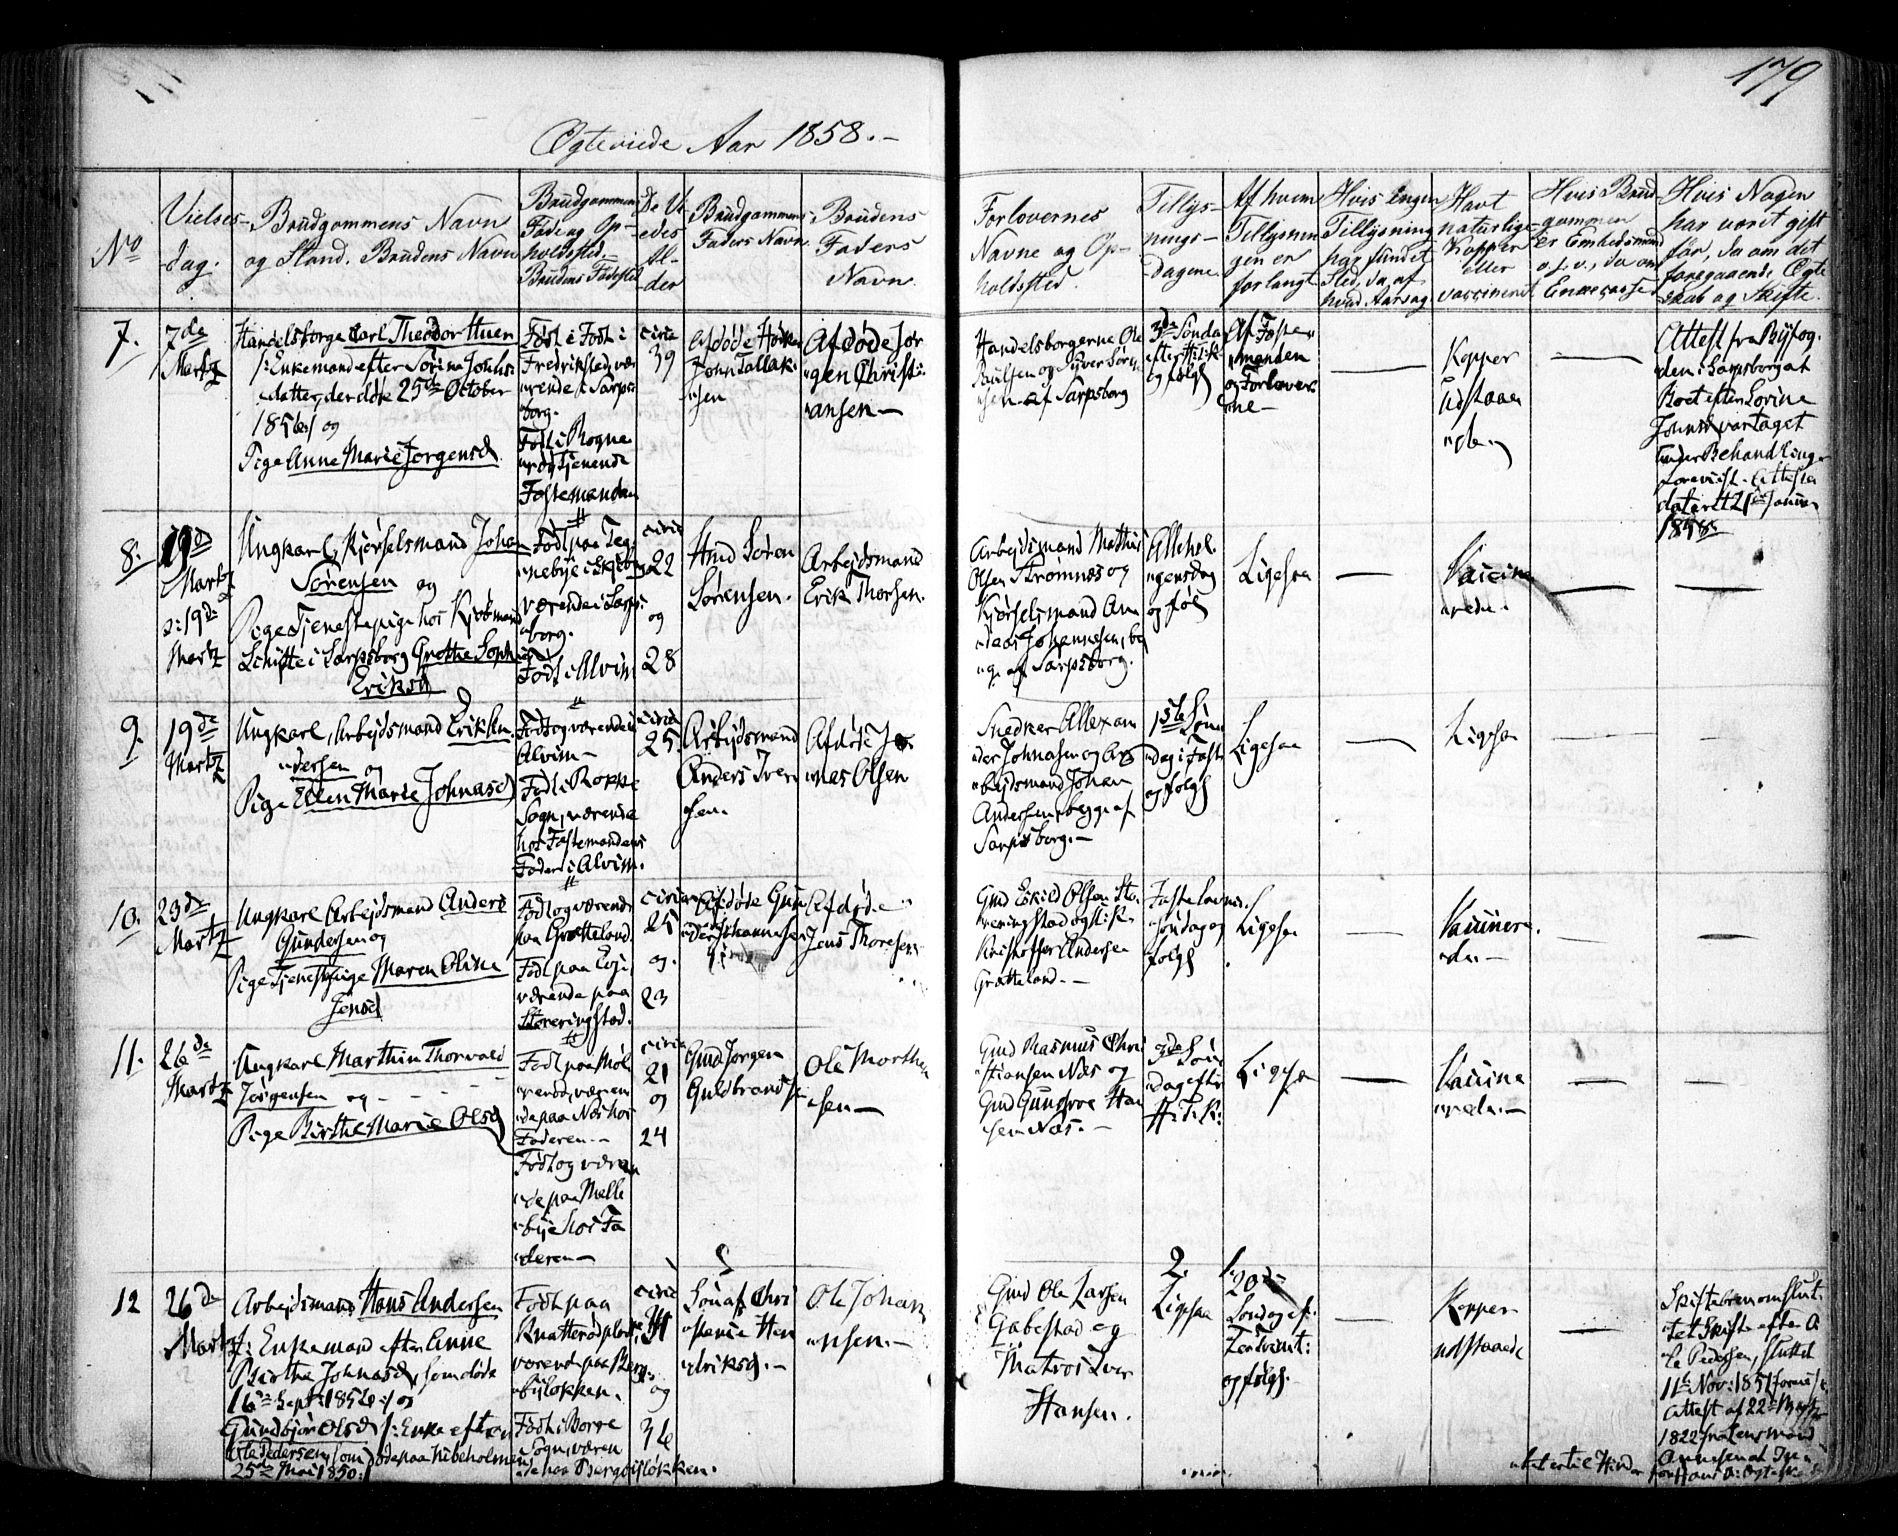 179
Ægteviede Aar 1858.-
No
Vielses-
dag.
Brudgommens Navn
og Stand. Brudens Navn
Brudgommens
Føde og Op-
holdssted.
Brudens Fødested
De Vi-
edes
Al-
der
Brudgommens
Faders Navn.
Brudens
Faders
Navn.
Forlovernes
Navne og Op-
holdsted.
Tillys-
nings-
dagene.
Af hvem
Tillysnin
gen er
forlangt
Hvis Ingen
Tillysning
har fundet
Sted, da, af
hvad Aarsag.
Havt
naturlige
Kopper
eller
vaccineret
Hvis Brud-
gommen
er Embedsmand
o.s.v., da om
Enkecasse
Hvis Nogen
har været gift
før, da om det
foregaaende Ægte-
skab og Skifte.
7.
7de
Martz
Handelsborge Carl Theodor Huer
/: Enkemand efter Sorine Johns:
datter, der døde 25de October
1856:/ og
Pige Anne Marie Jorgensd
Født i
Fredrikstad, væ
rende i Sarps
borg.
Født i Rogne
tjenende
Fæstemanden
circa
39
Afdøde
John Tallak-
sen
Afdøde Jør
gen Christi
ansen-
Handelsborgerne Ole
Paulsen og Syver Søren
sen af Sarpsborg
3de Sønda
efter H.3.K.
og følg
Af Fæste
manden
og Forlover
ne-
Kopper
udstaae
de.
Attest fra Byfog
den i Sarpsborg at
Boet efter Sorine
Johnsd var taget
under Behandling
forevist. Attesten
dateret 21de Januar
1858.
8.
19de
Martz
o: 19de
Martz
Ungkarl, Kjørselsmand Johan
Sørensen og
Pige Tjenestepige hos Kjøbmand
Schitte i Sarpsborg Grethe Sophie
Eriksd
Født paa Teg
nebye i Skjeberg
værende i Sarps
borg.
Født i Alvim
circa
22
og
28
Hmd Søren
Sørensen.
Arbejdsmand
Erik Thorsen.
Arbejdsmand Mathis
Olsen Strømnæs og
Kjørselsmand An
dreas Johannesen, beg
ge af Sarpsborg.
Allehel.
gensdag
og følg
Ligesaa
Vaccine
rede.
9.
19de
Martz
Ungkarl, Arbejdsmand Erik An
dersen og
Pige Ellen Marie Johnasd
Født og værende i
Alvim-
Født i Rokke
Sogn, værende
hos Fæstemandens
Fader i Alvim.
circa
25
Arbejdsmand
Anders Iver
sen.
Afdøde Jo
nas Olsen
Snedker Allexan
der Johnasen og Ar
bejdsmand Johan
Andersen, begge af
Sarpsborg.-
1ste Søn
dag i Faste
og følg
Ligesaa
Ligesaa
10.
23de
Martz
Ungkarl Arbejdsmand Anders
Gundersen og
Pige Tjenestepige Maren Oline
Jensd
Født og værende
paa Grotteland.
Født paa
værende paa
Støreringstad.
circa
25
og
23
Afdøde Gun
der Johannesen
Afdøde
Jens Thoresen
Gmd Eskild Olsen Stø
reringstad og H.K.
Kristoffer Andersen
Grotteland.-
Fastelavns
søndag og
følg
Ligesaa
Vaccinere
de.-
11.
26de
Martz
Ungkarl Marthin Thorvald
Jørgensen og
Pige Birthe Marie Olsd
Født paa Møl
lerød, væren
de paa Næs hos
Faderen.-
Født og væren
de paa Melle
bye hos Fa
deren-
circa
21
og
24
Gmd Jørgen
Guldbrandsen
Ole Morthen
sen-
Gmd Rasmus Chri
stiansen Næs og
Gmd Gunderoe Han
sen Næs.-
3de Søn
dag efter
H.3.K.
Ligesaa
Vaccine
rede.-
12
26de
Martz
Arbejdsmand Hans Andersen
/: Enkemand efter Anne
Birthe Johnasd, som døde
16de Sept: 1856:/ og
Gundbjør Olsd /: Enke efter
Ole Pedersen, som døde paa Nibeholmen
25de Mai 1850:/
Født paa
værende paa Berg
byløkken.
Født i Borge
Sogn, væren
de paa Bergbyløkken.
circa
og
36
Søn af Chri
stence Hen
driksd.-
Ole Johan
nsen.-
Gmd Ole Larsen
Gabestad og
Matros Iver
Hansen.
2.
Ligesaa
1.
20de
Søndag ef.
Trefold:
og følg.
Kopper
udstaaede
Skiftebrev om slut-
tet Skifte efter O
le Pedersen, sluttet
11te Nov: 1851 forevist
Attest af 22de Martz